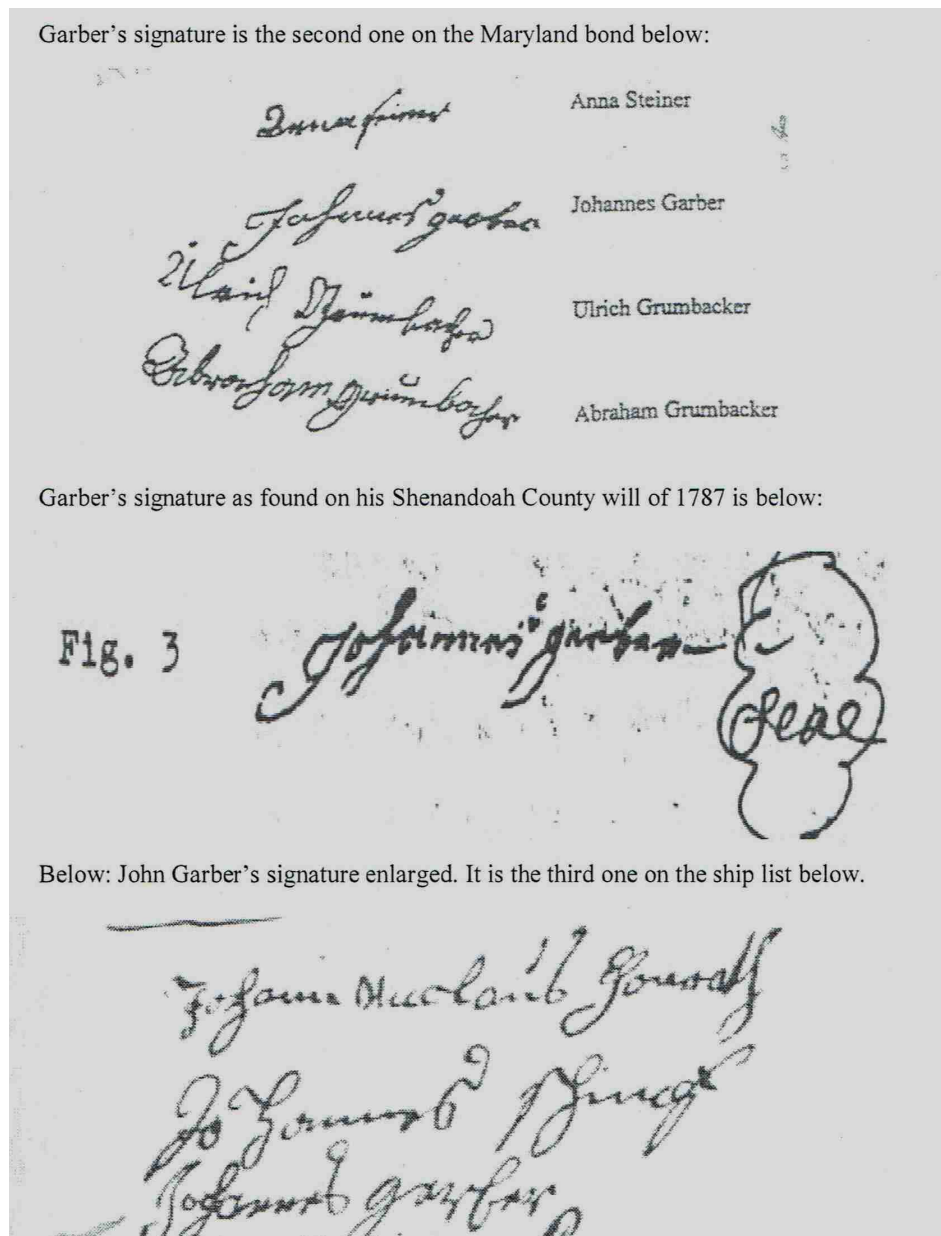 Garber’s signature is the second one on the Maryland bond below:
Anna Steiner
Johannes garber Johannes Garber
Ulrich Grumbacher Ulrich Grumbacker
Abraham grumbacher Abraham Grumbacker
Garber’s signature as found on his Shenandoah County will of 1787 is below:
Fig. 3 Johannes gerber
Seal
Below: John Garber’s signature enlarged. It is the third one on the ship list below.
Johann
Johannes
Johannes gerber